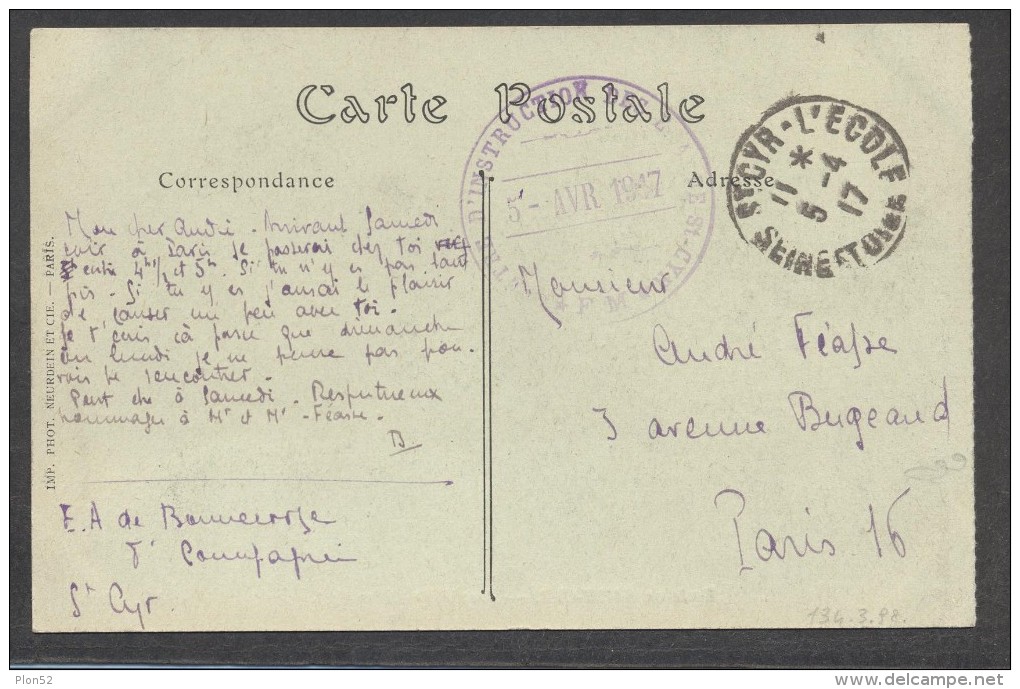 Carte Postale
Correspondance
Adresse
IMP. PHOT. NEURDEIN ET CIE. — PARIS.
D'INSTRUCTION
5 - AVR 1917
ST-CYR
* F M
ST CYR - L'ECOLE
* 
11 5 -4 17
SEINE ET OISE
Mon cher André - Arrivant Samedi
soir à Paris je passerai chez toi
entre 4h 1/2 et 5h. Si tu n'y es pas tant
pis - Si tu y es j'aurai le plaisir
de causer un peu avec toi -
Je t'écris cà parce que dimanche
ou lundi je ne pense pas pou-
voir te rencontrer -
Peut être à Samedi - Respectueux
hommages à Mr et Me - Féasse -
B
E.A de Bonnecorse
Compagnie
St Cyr
Monsieur
André Féasse
3 avenue Bugeaud
Paris 16
134.3.98.
Plon52
delcampe.net